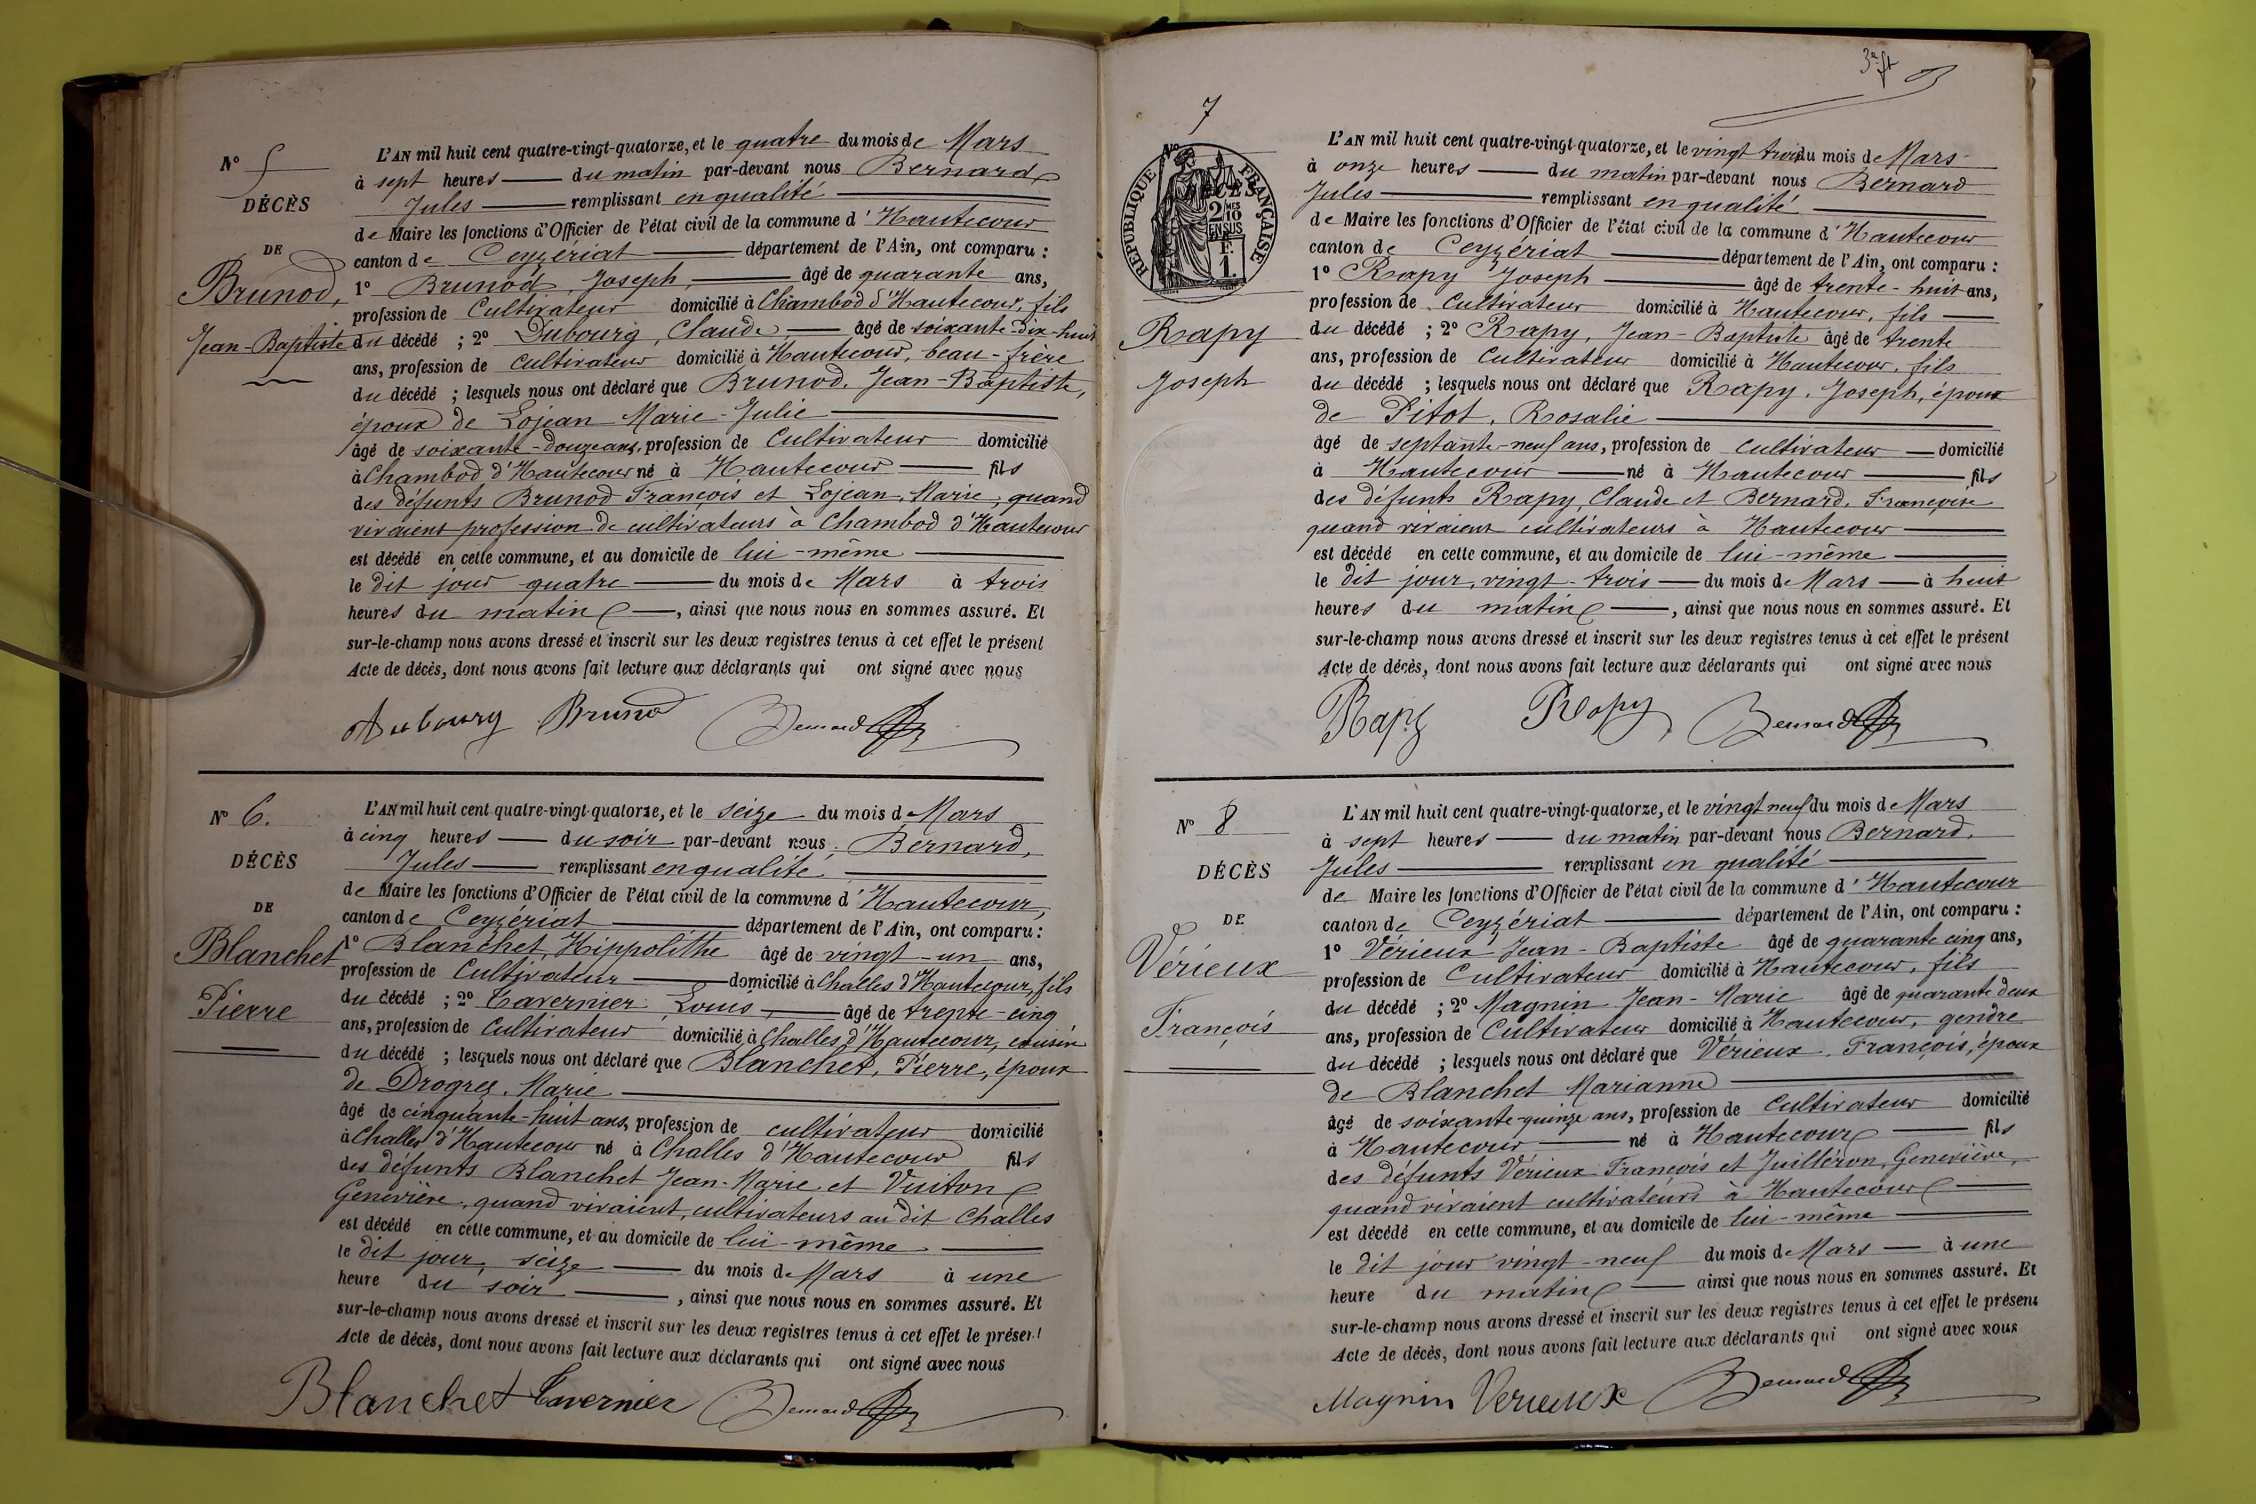 N° 5
DÉCÈS
DE
Brunod,
Jean-Baptiste
L'AN mil huit cent quatre-vingt-quatorze, et le quatre du mois de Mars
à sept heures du matin par-devant nous Bernard
Jules remplissant en qualité
de Maire les fonctions d'Officier de l'état civil de la commune d'Hautecour
canton de Ceyzériat département de l'Ain, ont comparu :
1° Brunod, Joseph, âgé de quarante ans,
profession de Cultivateur domicilié à Chambod d'Hautecour, fils
du décédé ; 2° Dubourg, Claude âgé de soixante-dix-huit
ans, profession de Cultivateur domicilié à Hautecour, beau-frère
du décédé ; lesquels nous ont déclaré que Brunod, Jean-Baptiste,
époux de Lojean Marie-Julie
âgé de soixante-douze ans, profession de Cultivateur domicilié
à Chambod d'Hautecour né à Hautecour fils
des défunts Brunod François et Lojean, Marie, quand
vivaient profession de cultivateurs à Chambod d'Hautecour
est décédé en cette commune, et au domicile de lui-même
le dit jour quatre du mois de Mars à trois
heures du matin, ainsi que nous nous en sommes assuré. Et
sur-le-champ nous avons dressé et inscrit sur les deux registres tenus à cet effet le présent
Acte de décès, dont nous avons fait lecture aux déclarants qui ont signé avec nous
Dubourg Brunod Bernard
N° 6.
DÉCÈS
DE
Blanchet
Pierre
L'AN mil huit cent quatre-vingt-quatorze, et le seize du mois d Mars
à cinq heures du soir par-devant nous, Bernard,
Jules remplissant en qualité
de Maire les fonctions d'Officier de l'état civil de la commune d'Hautecour,
canton de Ceyzériat département de l'Ain, ont comparu :
1° Blanchet, Hippolithe âgé de vingt-un ans,
profession de Cultivateur domicilié à Challes d'Hautecour, fils
du décédé ; 2° Tavernier, Louis, âgé de trente-cinq
ans, profession de Cultivateur domicilié à Challes d'Hautecour, cousin
du décédé ; lesquels nous ont déclaré que Blanchet, Pierre, époux
de Drogrez, Marie
âgé de cinquante-huit ans, profession de cultivateur domicilié
à Challes d'Hautecour né à Challes d'Hautecour fils
des défunts Blanchet Jean-Marie et Vuiton
Geneviève, quand vivaient, cultivateurs au dit Challes
est décédé en cette commune, et au domicile de lui-même
le dit jour, seize du mois de Mars à une
heure du soir, ainsi que nous nous en sommes assuré. Et
sur-le-champ nous avons dressé et inscrit sur les deux registres tenus à cet effet le présent
Acte de décès, dont nous avons fait lecture aux déclarants qui ont signé avec nous
Blanchet Tavernier Bernard
7
RÉPUBLIQUE FRANÇAISE
2 10
EN SUS
F.
1.
Rapy
Joseph
L'AN mil huit cent quatre-vingt-quatorze, et le vingt trois du mois de Mars
à onze heures du matin par-devant nous Bernard
Jules remplissant en qualité
de Maire les fonctions d'Officier de l'état civil de la commune d'Hautecour
canton de Ceyzériat département de l'Ain, ont comparu :
1° Rapy Joseph âgé de trente-huit ans,
profession de Cultivateur domicilié à Hautecour, fils
du décédé ; 2° Rapy, Jean-Baptiste âgé de trente
ans, profession de Cultivateur domicilié à Hautecour, fils
du décédé ; lesquels nous ont déclaré que Rapy, Joseph, époux
de Pitot, Rosalie
âgé de septante-neuf ans, profession de cultivateur domicilié
à Hautecour né à Hautecour fils
des défunts Rapy, Claude et Bernard, Françoise
quand vivaient cultivateurs à Hautecour
est décédé en cette commune, et au domicile de lui-même
le dit jour, vingt-trois du mois de Mars à huit
heures du matin, ainsi que nous nous en sommes assuré. Et
sur-le-champ nous avons dressé et inscrit sur les deux registres tenus à cet effet le présent
Acte de décès, dont nous avons fait lecture aux déclarants qui ont signé avec nous
Rapy Rapy Bernard
N° 8
DÉCÈS
DE
Vérieux
François
L'AN mil huit cent quatre-vingt-quatorze, et le vingt neuf du mois de Mars
à sept heures du matin par-devant nous Bernard,
Jules remplissant en qualité
de Maire les fonctions d'Officier de l'état civil de la commune d'Hautecour
canton de Ceyzériat département de l'Ain, ont comparu :
1° Vérieux Jean-Baptiste âgé de quarante cinq ans,
profession de Cultivateur domicilié à Hautecour, fils
du décédé ; 2° Magnin Jean-Marie âgé de quarante deux
ans, profession de Cultivateur domicilié à Hautecour, gendre
du décédé ; lesquels nous ont déclaré que Vérieux, François, époux
de Blanchet Marianne
âgé de soixante-quinze ans, profession de Cultivateur domicilié
à Hautecour né à Hautecour fils
des défunts Vérieux François et Juilléron, Geneviève,
quand vivaient cultivateurs à Hautecour
est décédé en cette commune, et au domicile de lui-même
le dit jour vingt-neuf du mois de Mars à une
heure du matin ainsi que nous nous en sommes assuré. Et
sur-le-champ nous avons dressé et inscrit sur les deux registres tenus à cet effet le présent
Acte de décès, dont nous avons fait lecture aux déclarants qui ont signé avec nous
Magnin Verieux Bernard